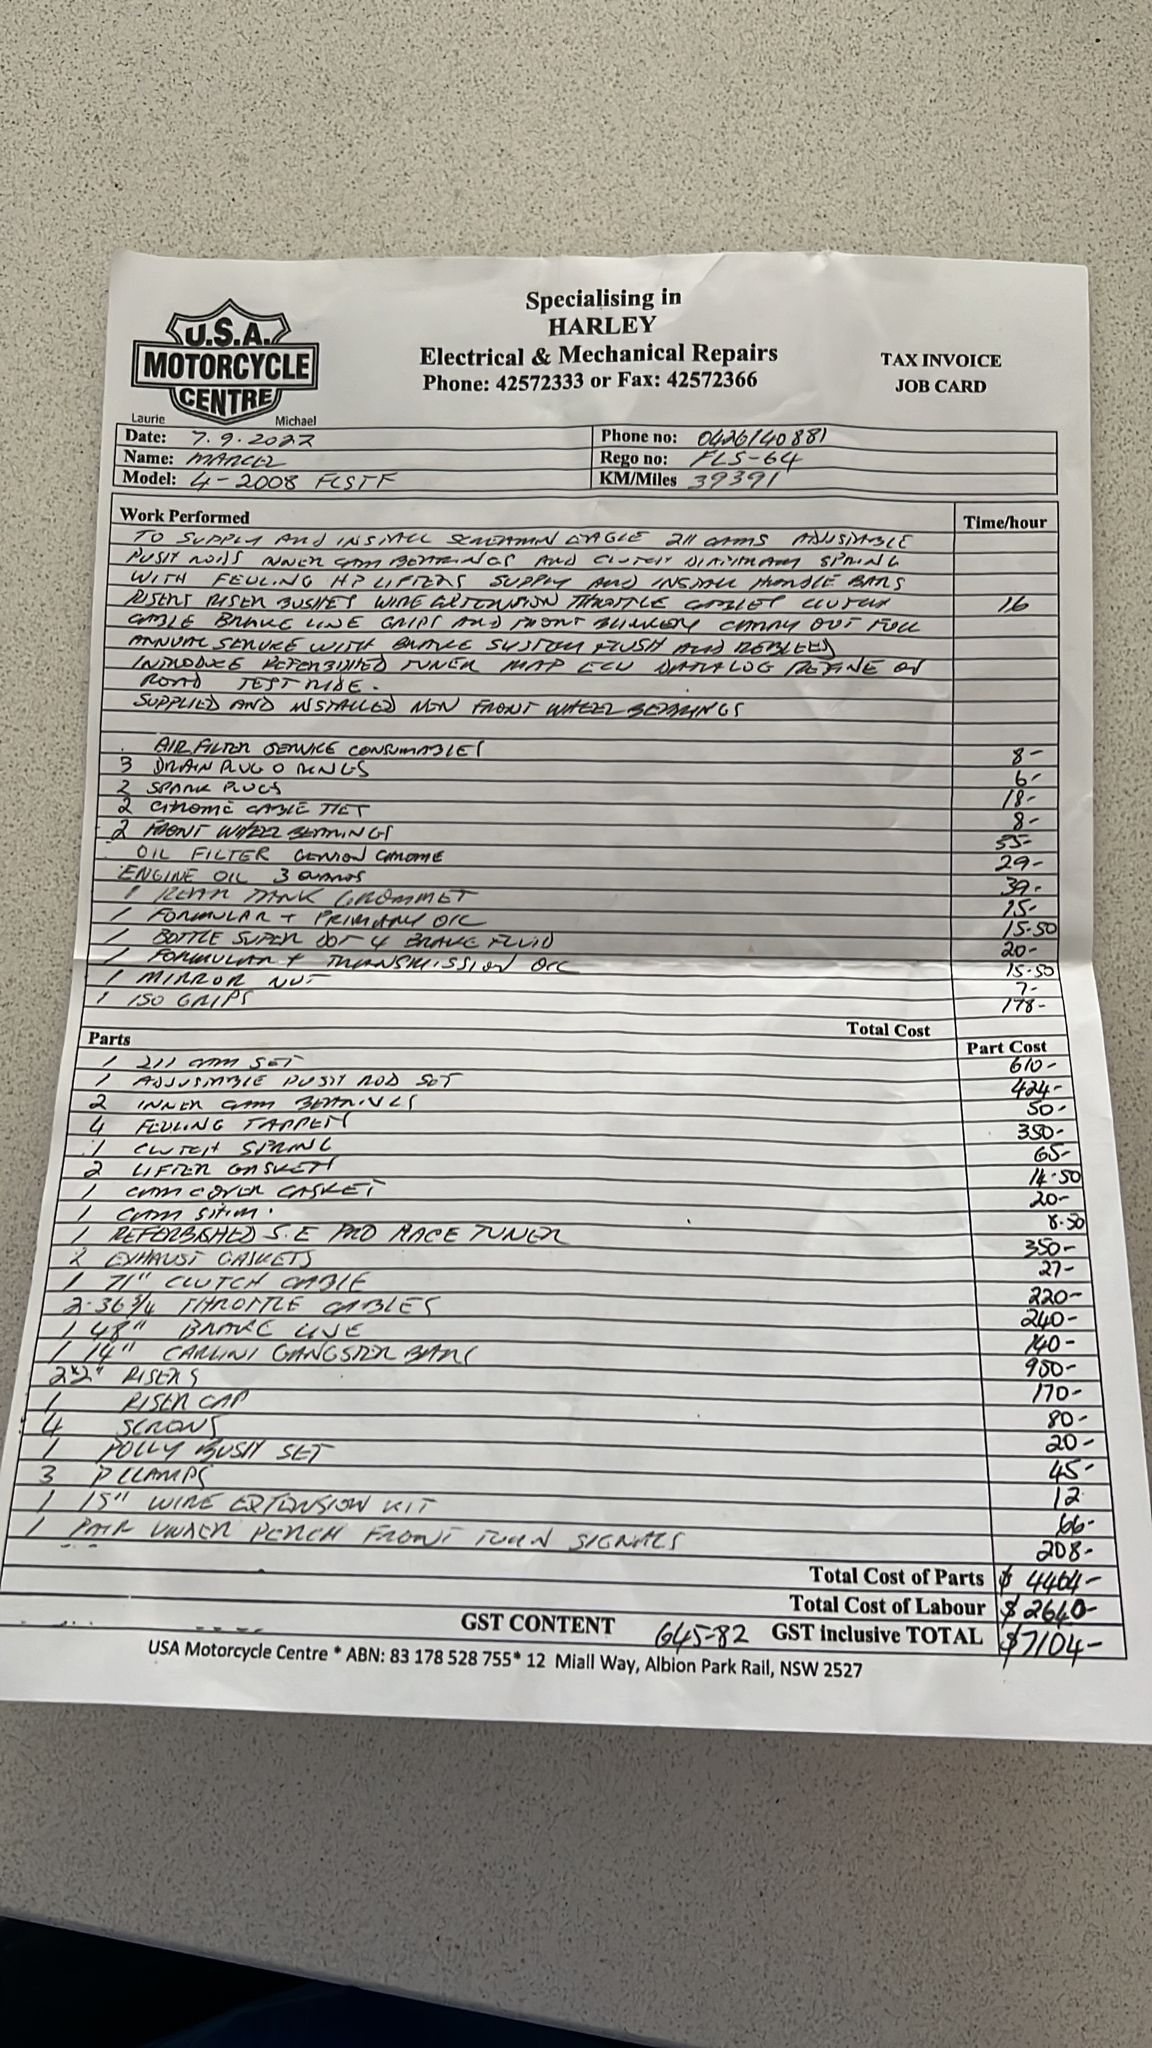 U.S.A.
MOTORCYCLE
CENTRE
Laurie Michael
Specialising in
HARLEY
Electrical & Mechanical Repairs
Phone: 42572333 or Fax: 42572366
TAX INVOICE
JOB CARD
Date: 7.9.2022 Phone no: 0426140881
Name: MARCEL Rego no: FLS-64
Model: 4-2008 FLSTF KM/Miles 39391
Work Performed Time/hour
TO SUPPLY AND INSTALL SCREAMIN EAGLE 211 CAMS ADJUSTABLE
PUSH RODS INNER CAM BEARINGS AND CLUTCH DIAPHRAM SPRING
WITH FEULING HP LIFTERS SUPPLY AND INSTALL HANDLE BARS
RISERS RISER BUSHES WIRE EXTENSION THROTTLE CABLES CLUTCH 16
CABLE BRAKE LINE GRIPS AND FRONT BLINKERS CARRY OUT FULL
ANNUAL SERVICE WITH BRAKE SYSTEM FLUSH AND REBLEED
INTRODUCE REFERBISHED TUNER MAP ECU DATALOG REFINE ON
ROAD TEST RIDE.
SUPPLIED AND INSTALLED NEW FRONT WHEEL BEARINGS
AIR FILTER SERVICE CONSUMABLES 8-
3 DRAIN PLUG O RINGS 6-
2 SPARK PLUGS 18-
2 CHROME CABLE TIES 8-
2 FRONT WHEEL BEARINGS 55-
OIL FILTER GENION CHROME 29-
ENGINE OIL 3 QUARTS 39-
1 REAR TANK GROMMET 15-
1 FORMULAR + PRIMARY OIL 15-50
1 BOTTLE SUPER DOT 4 BRAKE FLUID 20-
1 FORMULAR + TRANSMISSION OIL 15-50
1 MIRROR NUT 7-
1 ISO GRIPS 178-
Total Cost
Parts Part Cost
1 211 CAM SET 610-
1 ADJUSTABLE PUSH ROD SET 424-
2 INNER CAM BEARINGS 50-
4 FEULING TAPPETS 350-
1 CLUTCH SPRING 65-
2 LIFTER GASKETS 14-50
1 CAM COVER GASKET 20-
1 CAM SHIM. 8-50
1 REFERBISHED S.E PRO RACE TUNER 350-
2 EXHAUST GASKETS 27-
1 71" CLUTCH CABLE 220-
2-36 3/4 THROTTLE CABLES 240-
1 48" BRAKE LINE 140-
1 14" CARLINI GANGSTER BARS 900-
2x2" RISERS 170-
1 RISER CAP 80-
4 SCREWS 20-
1 POLLY BUSH SET 45-
3 P CLAMPS 12
1 15" WIRE EXTENSION KIT 66-
1 PAIR UNDER PERCH FRONT TURN SIGNALS 208-
Total Cost of Parts $ 4464-
Total Cost of Labour $ 2640-
GST CONTENT 645-82 GST inclusive TOTAL $7104-
USA Motorcycle Centre * ABN: 83 178 528 755* 12 Miall Way, Albion Park Rail, NSW 2527